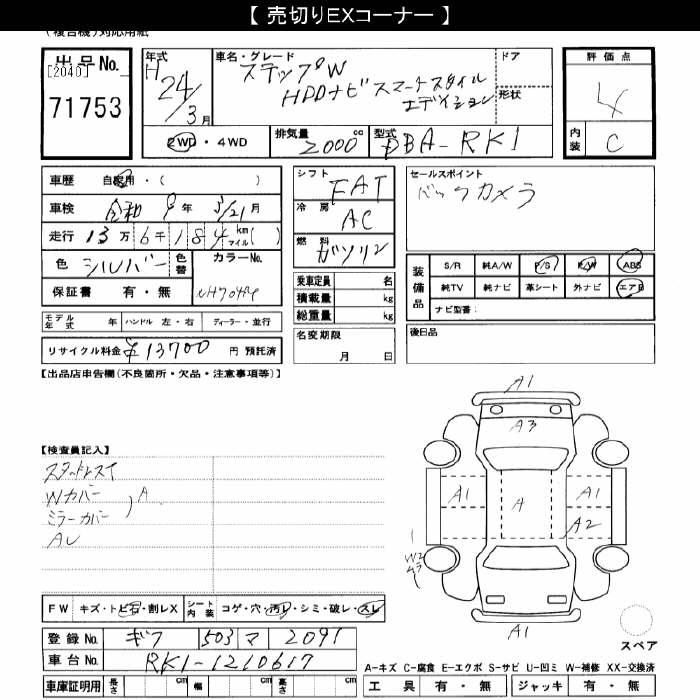 【 売切りEXコーナー 】
(複合機)対応用紙
出品No.
[2040]
71753
年式
H 24/3月
車名・グレード
ステップW
HDDナビ スマートスタイル
エディション
ドア
形状
評価点
4
内装
C
2WD・4WD
排気量
2000 cc
型式
DBA-RK1
車歴 自家用・( )
車検 令和 年 /21月
走行 13万6千184 km マイル( )
色 シルバー 色替 カラーNo.
保証書 有・無 NH704M
モデル年式 年 ハンドル 左・右 ディーラー・並行
リサイクル料金 ¥13700 円 預託済
シフト
FAT
冷房
AC
燃料
ガソリン
乗車定員 名
積載量 kg
総重量 kg
名変期限
月 日
セールスポイント
バックカメラ
装備品
S/R 純A/W P/S P/W ABS
純TV 純ナビ 革シート 外ナビ エアB
ナビ型番:
後日品
【出品店申告欄(不良箇所・欠品・注意事項等)】
【検査員記入】
スタッドレスイ
Wカバー
ミラーカバー
A
AU
A1
A3
A1
A
A1
A2
W2
A1
スペア
FW キズ・トビ石・割レX シート内装 コゲ・穴・汚レ・シミ・破レ・スレ
登録No. ギフ 503 マ 2091
車台No. RK1-1210617
車庫証明用 長さ cm 幅 cm 高さ cm
A-キズ C-腐食 E-エクボ S-サビ U-凹ミ W-補修 XX-交換済
工具 有・無 ジャッキ 有・無